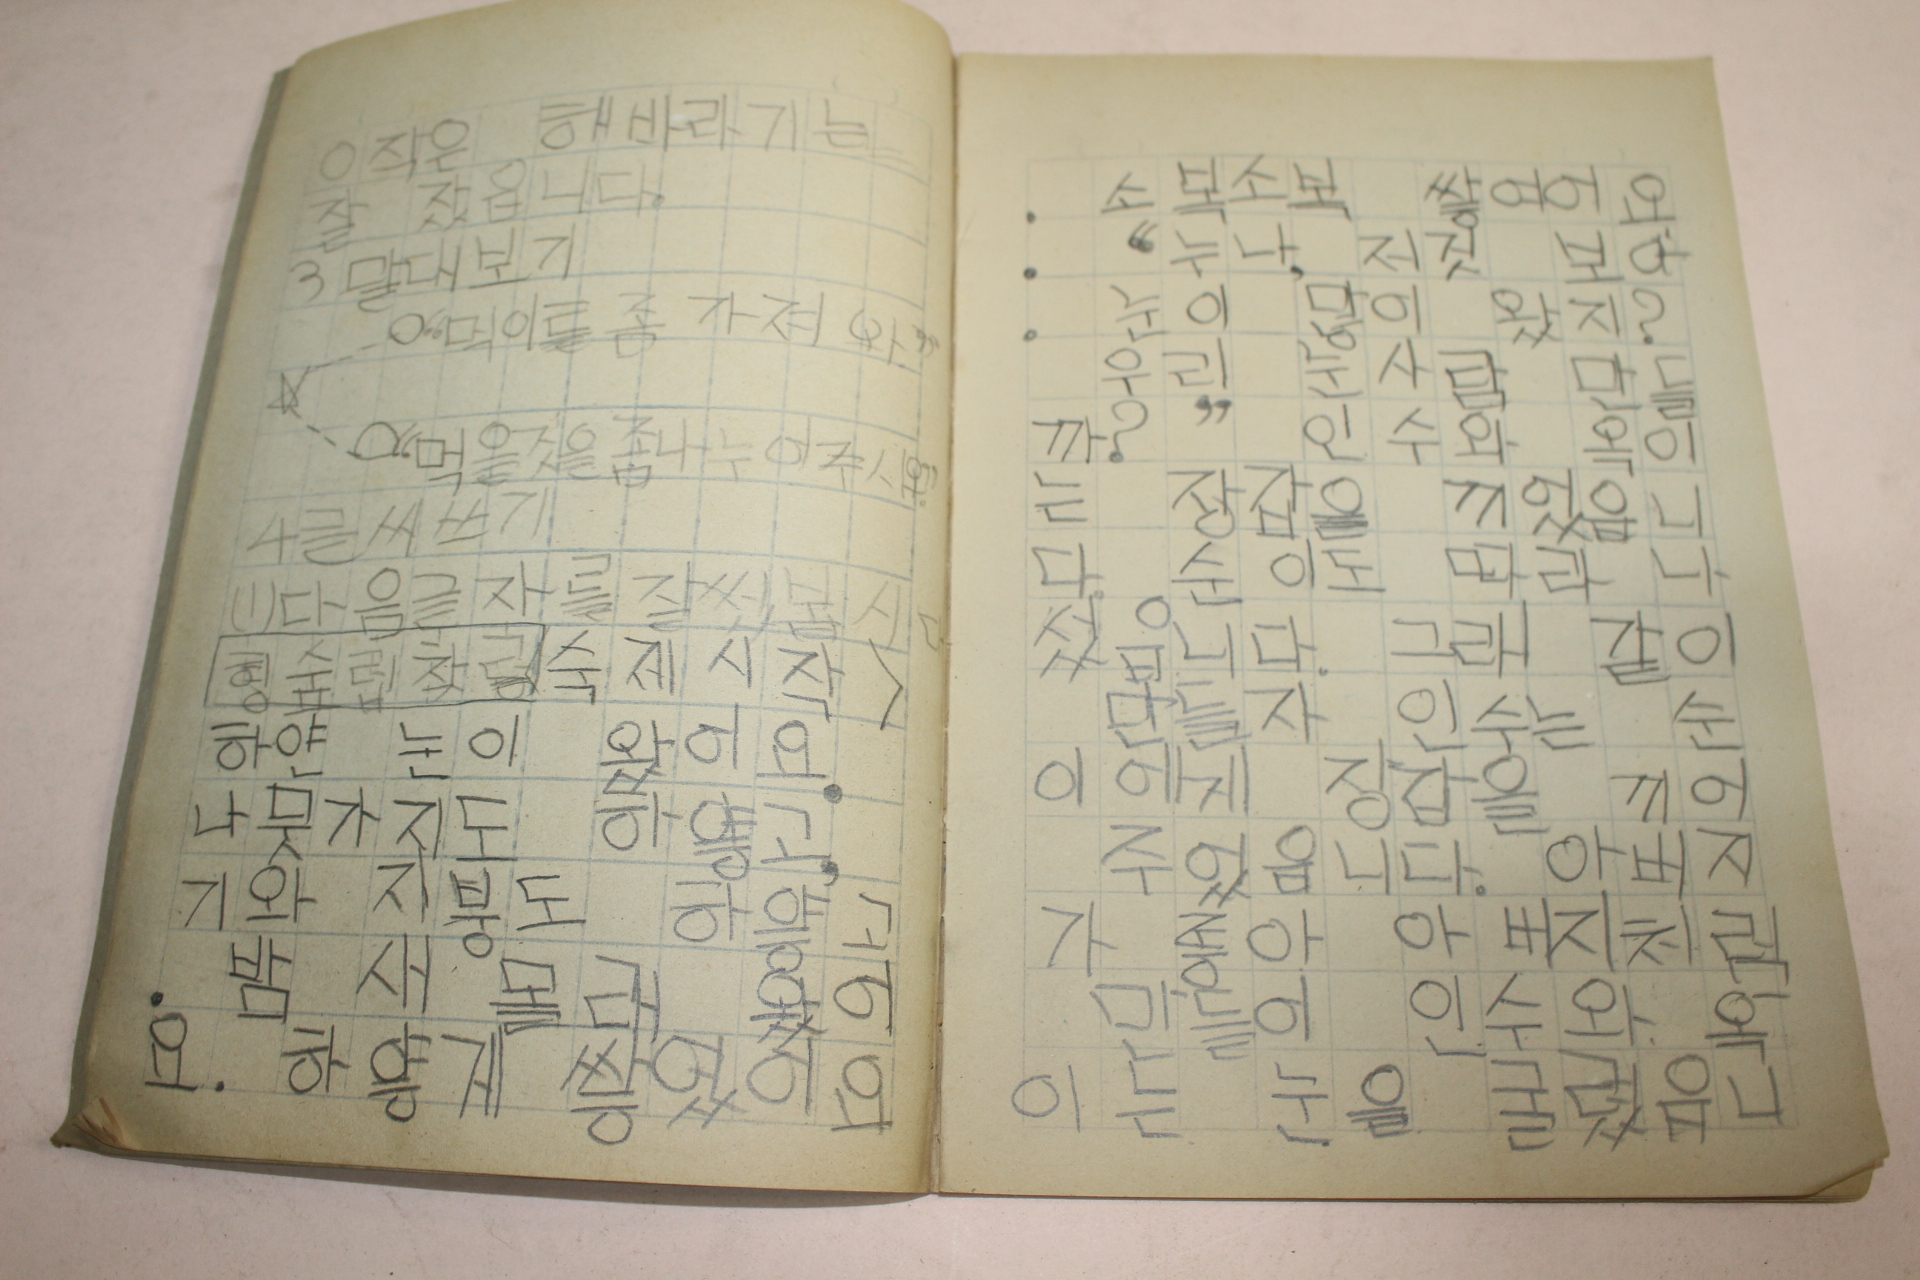 ○ 작은 해바라기는
잘 잤읍니다.
3 말대보기
○“먹이를 좀 가져 와”
○“먹을것을좀나누어주시
4 글씨쓰기
(1)다음글자를 잘써봅시다
숙제시작
하얀 눈이 왔어요.
나뭇가지도 하얗고,
기와 지붕도 하
밤새
요. 하얗게 쌓였어요
소복소복 쌓였어요
“누나, 저것 보아
눈이 많이 왔지?
우리 눈사람 만들
까?” 인수와 옥이
는 장갑을 끼었읍니
다 순이도 따라 나
섰읍니다. 그래 갈이
만들자 인수는 순
이에게 장갑을 끼어
주었읍니다. 아버지
가 아버지처럼
인수와 옥
이는 눈을 굴렸읍니